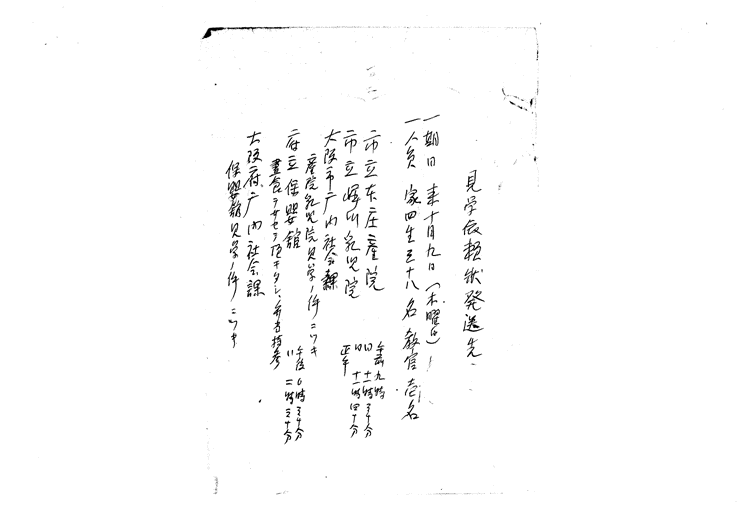 見学依頼状発送先
一期日 来十月九日(木曜日)
一人員 家四生三十八名 教官壱名
市立本庄産院 午前九時
〃 十一時三十分
市立堀川乳児院 〃 十一時四十分
正午
大阪市庁内社会課
産院乳児院見学ノ件ニツキ
府立保嬰館 午後〇時三十分
〃 二時三十分
昼食ヲサセテ頂キタシ、弁当持参
大阪府庁内社会課
保嬰館見学ノ件ニツキ